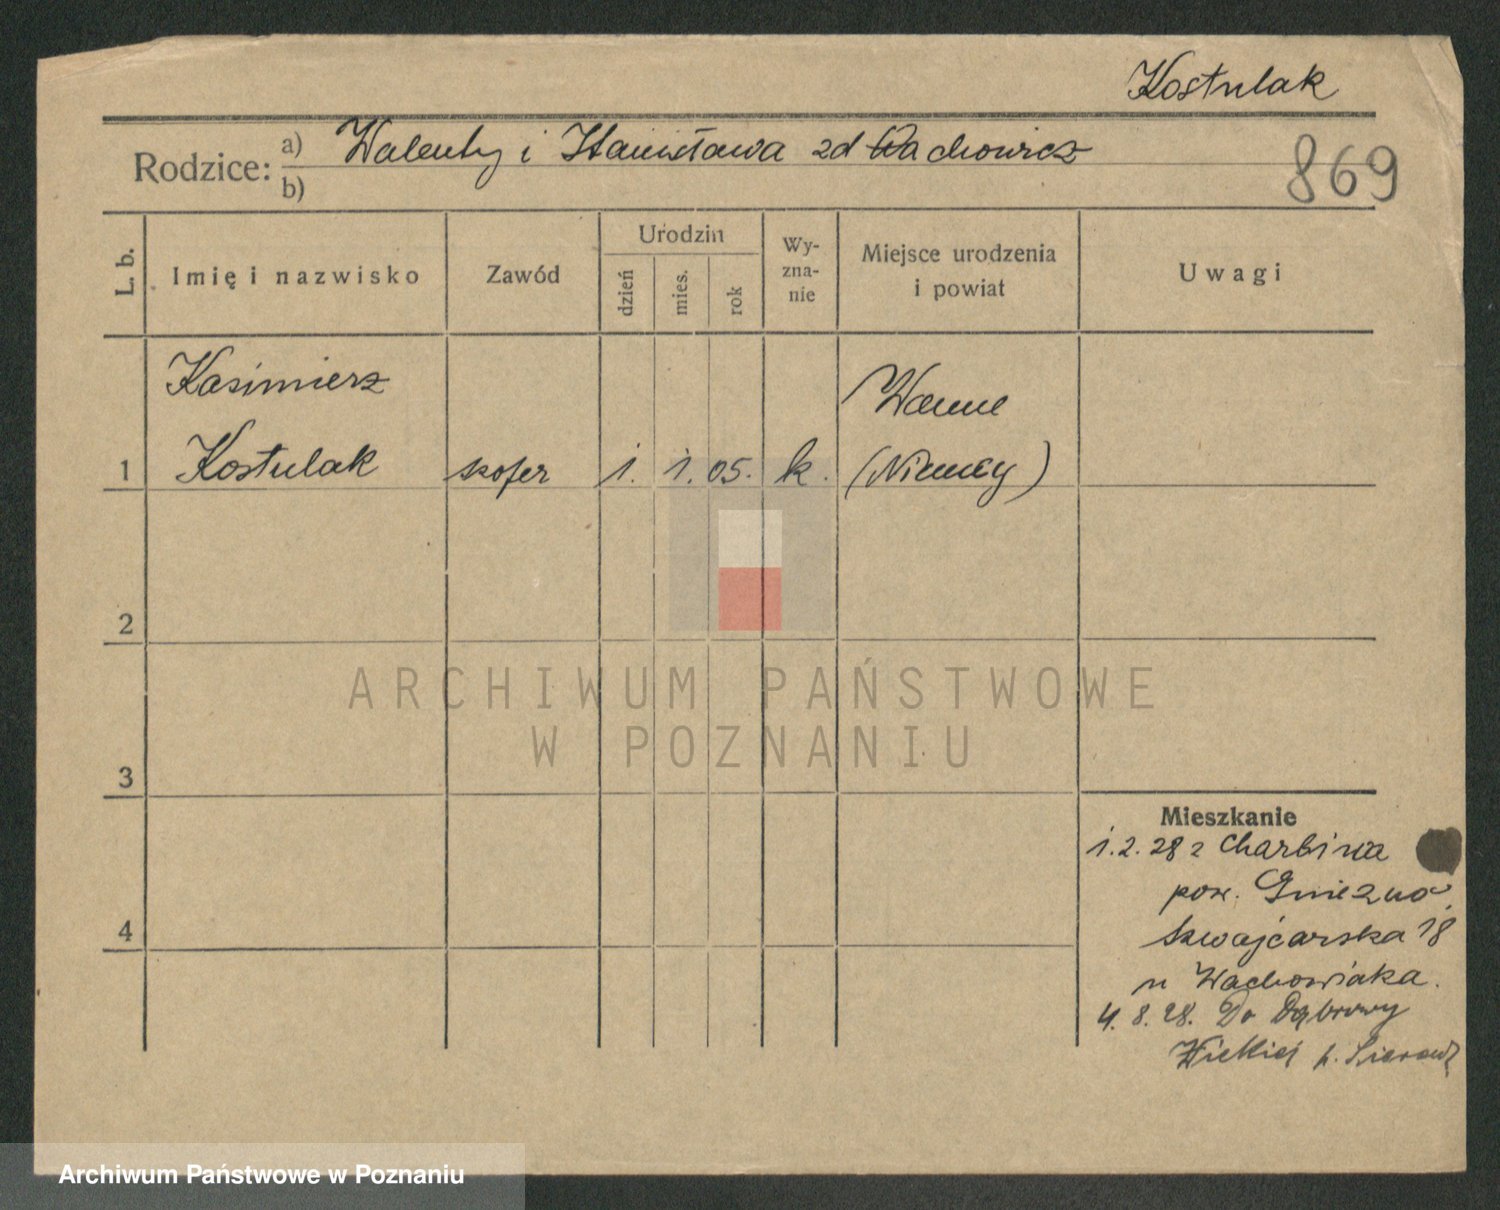 Kostulak
Rodzice: a) Walenty i Stanisława zd Wachowicz
b)
869
L. b.
Imię i nazwisko
Zawód
Urodzin
dzień
mies.
rok
Wy-
zna-
nie
Miejsce urodzenia
i powiat
Uwagi
Kasimierz
Wanne
1 Kostulak szofer 1. 1. 05. k. (Niemcy)
2
3
4
ARCHIWUM PAŃSTWOWE
W POZNANIU
Mieszkanie
1.2.28 z Charbina
pow. Gniezno
Szwajcarska 18
u Wachowiaka.
4.8.28. Do Dąbrowy
Wielkiej p. Sieradz
Archiwum Państwowe w Poznaniu